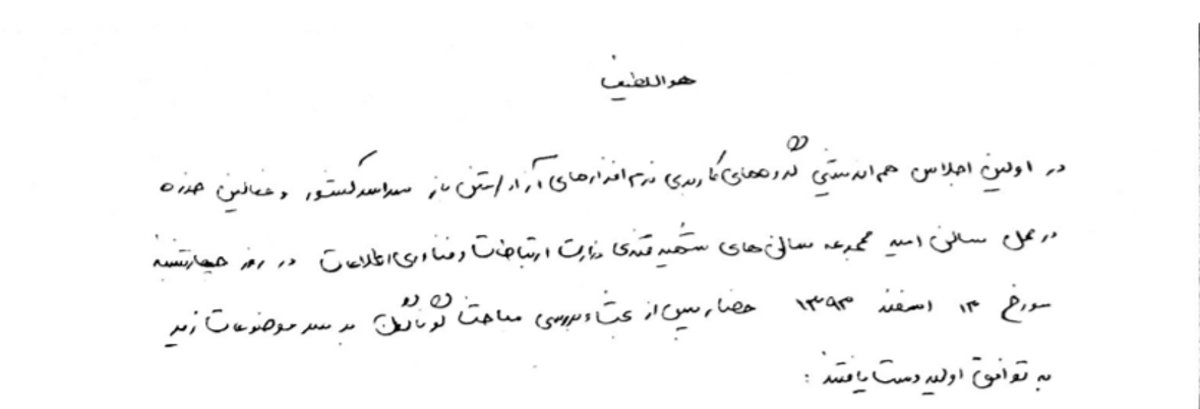 هو اللطیف
در اولین اجلاس هم اندیشی گروه‌های کاربری نرم افزارهای آزاد/متن باز سراسر کشور و فعالین حوزه
در محل سالن امید مجموعه سالن‌های شهید قندی وزارت ارتباطات و فناوری اطلاعات در روز چهارشنبه
مورخ ۱۳ اسفند ۱۳۹۳ حضار پس از بحث و بررسی مباحث گوناگون بر سر موضوعات زیر
به توافق اولیه دست یافتند :